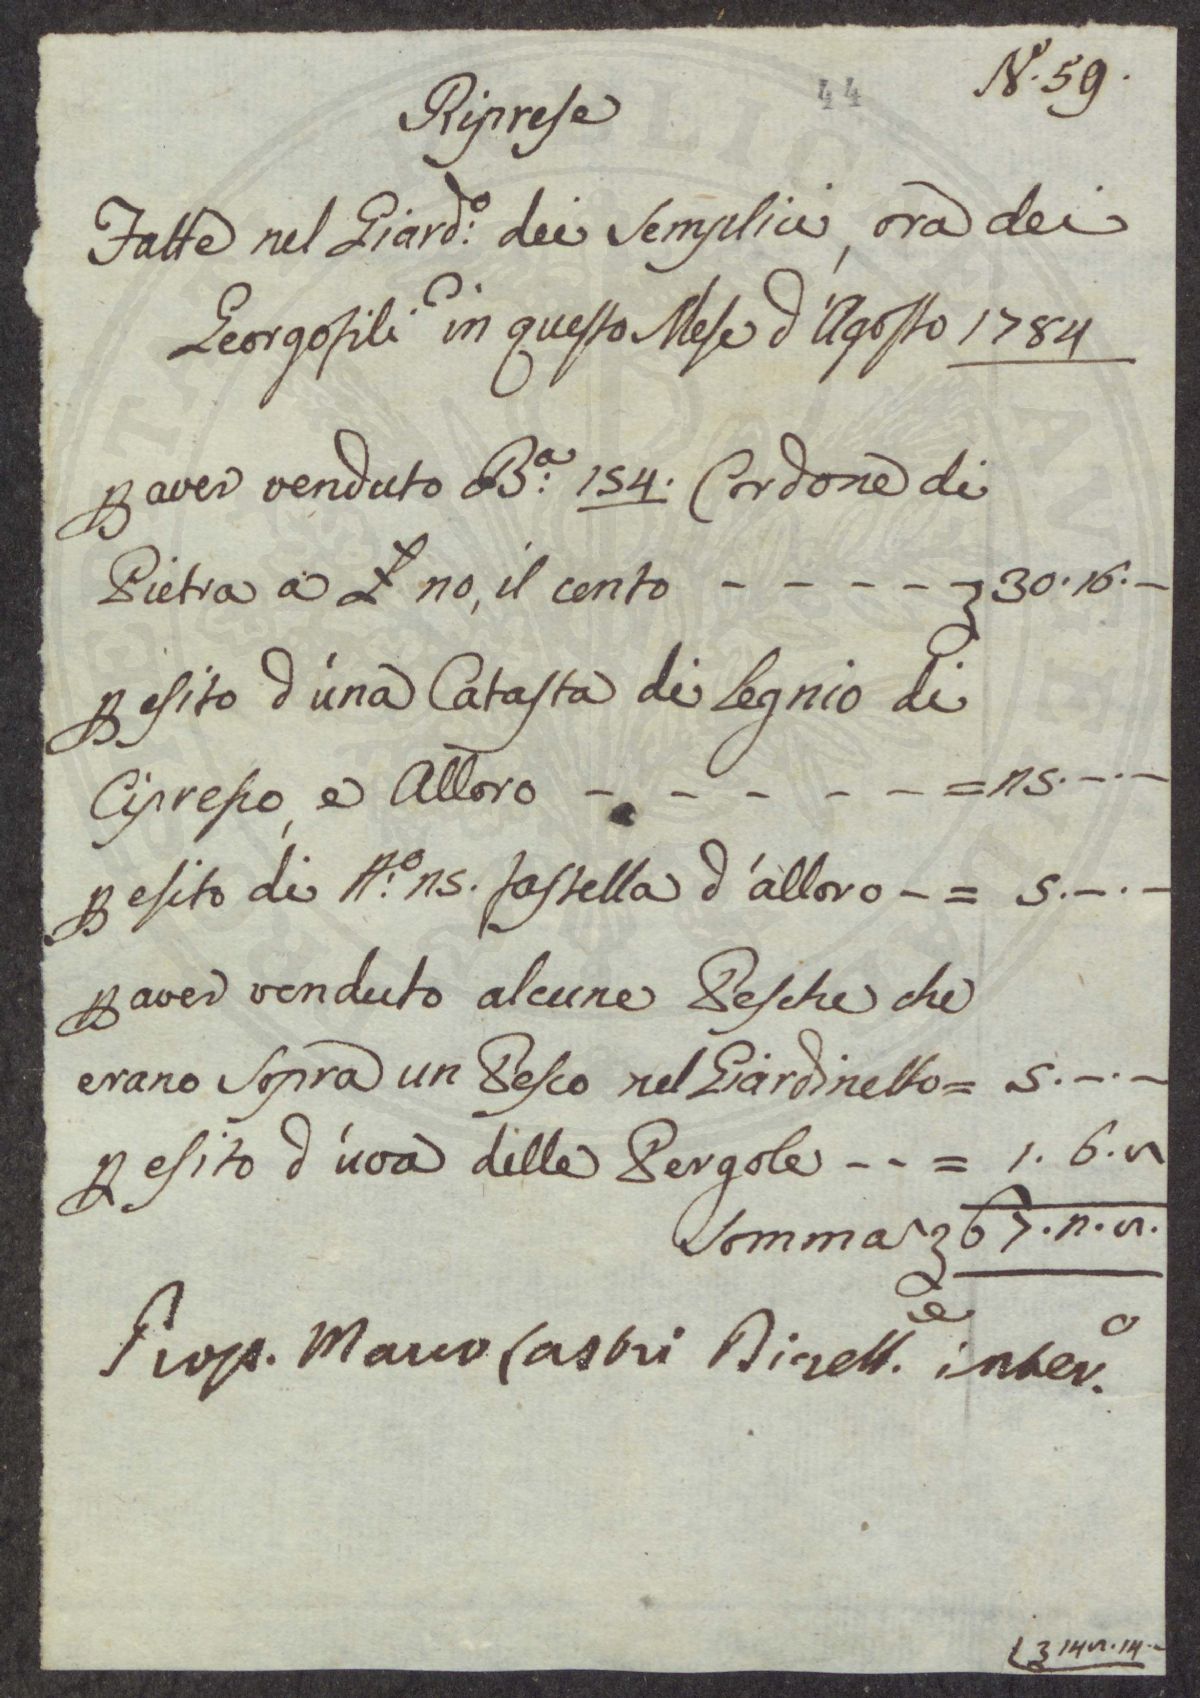 N.° 59.
44
Riprese
Fatte nel Giard:° dei Semplici, ora dei
Georgofili in questo Mese d'Agosto 1784
p aver venduto B:a 154. Cordone di
Pietra a £ 20, il cento - - - - - £ 30.16.-
p esito d'una Catasta di legnio di
Cipresso, e Alloro - - - - - = 25.-.-
p esito di N:° 25. fastella d'alloro - = 5.-.-
p aver venduto alcune Pesche che
erano sopra un Pesco nel Giardinetto = 5.-.-
p esito d'uva delle Pergole - - = 1.6.8
Somma £ 67.2.8.
Prop. Marco Lastri Dirett.e inter.°
£ 148.14.-